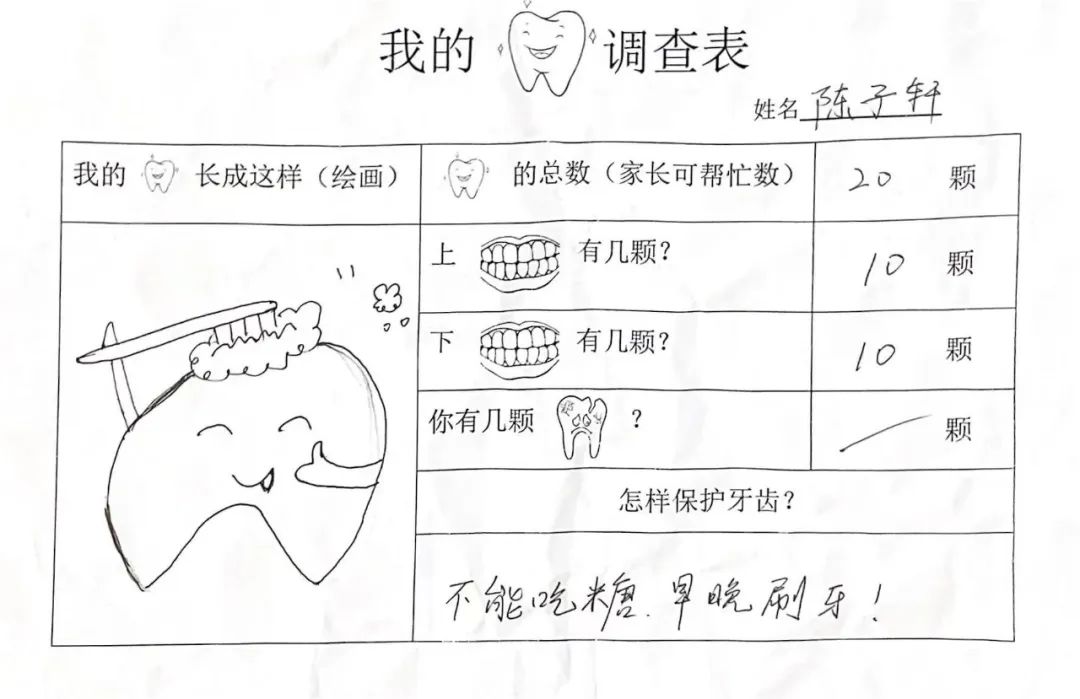 我的 调查表
姓名 陈子轩
我的 长成这样（绘画）
的总数（家长可帮忙数） 20 颗
上 有几颗？ 10 颗
下 有几颗？ 10 颗
你有几颗 ？ / 颗
怎样保护牙齿？
不能吃糖.早晚刷牙！